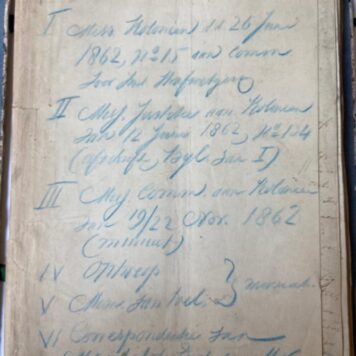 I Miss. Kolonien dd 26 Juni
1862, No 15 aan Comm.
voor het
II Miss. Justitie aan Kolonien
van 12 Junij 1862, No 124
(afschrift, bijl. van I)
III Miss. Comm. aan Kolonien
van 19/22 Nov. 1862
(minuut)
IV Ontwerp
V Mem. van toel. } minuut.
VI Correspondentie van